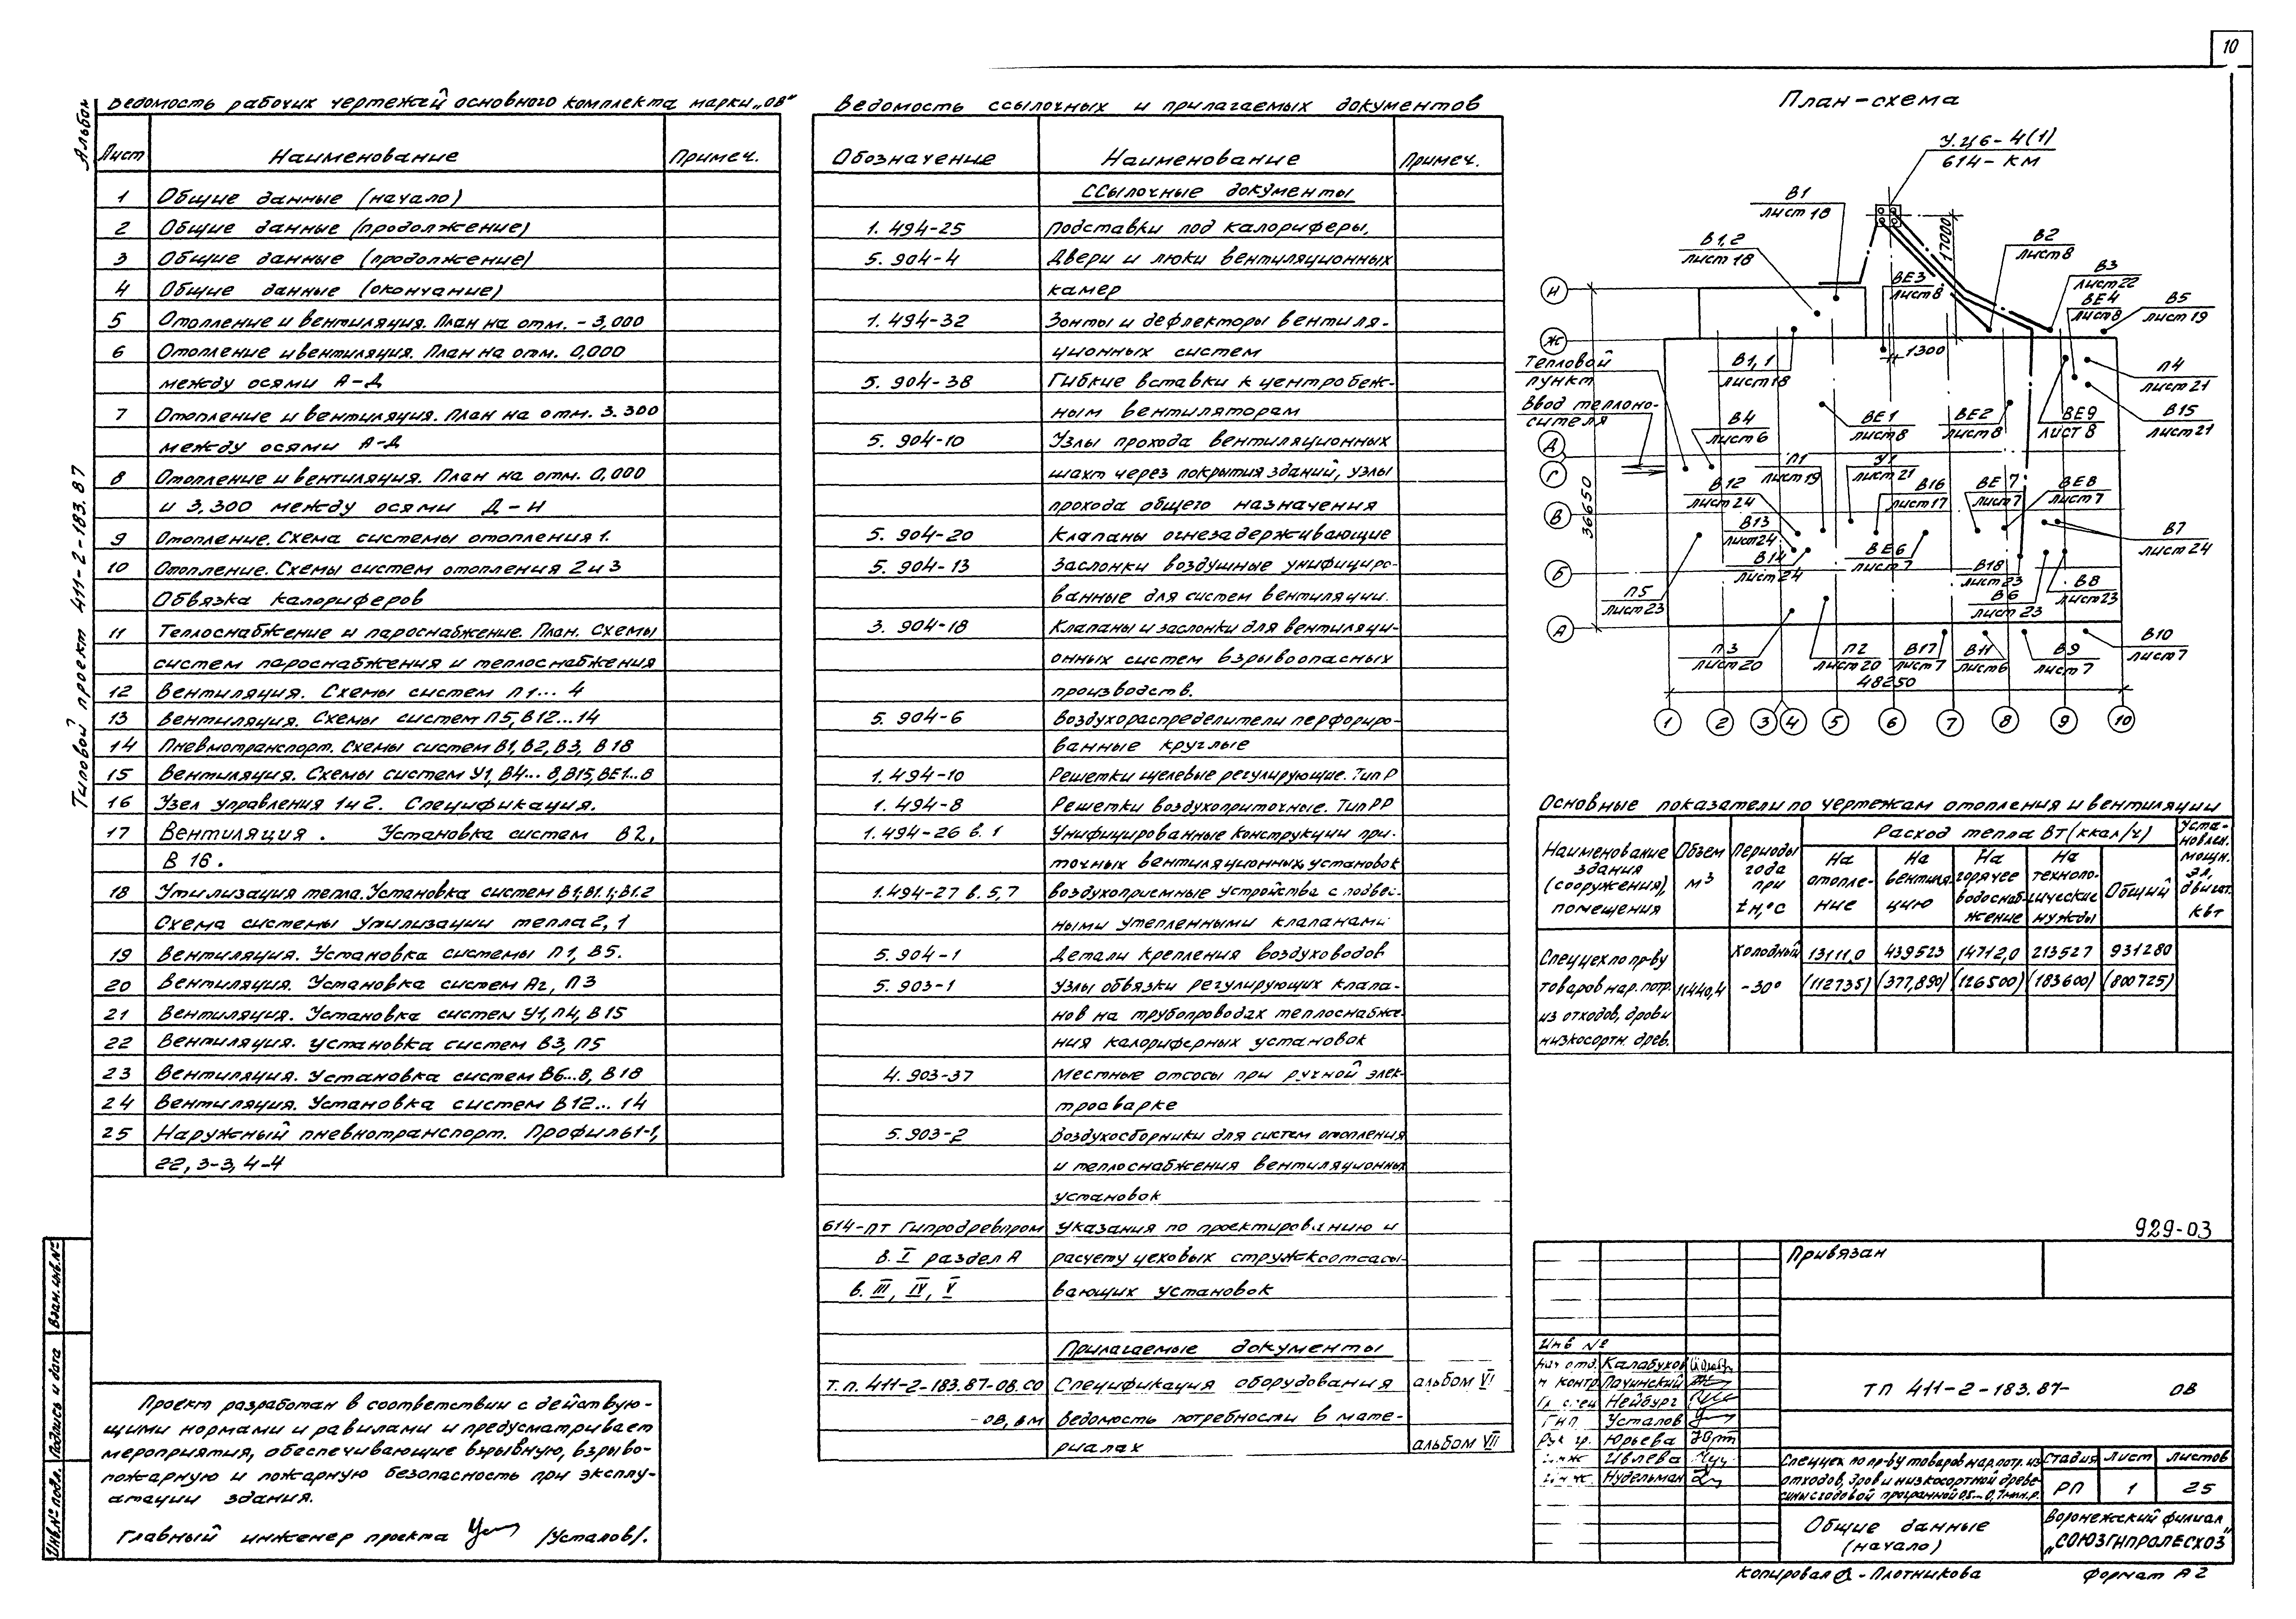 10
Альбом
Типовой проект 411-2-183.87
Ведомость рабочих чертежей основного комплекта марки „ОВ"
Лист Наименование Примеч.
1 Общие данные (начало)
2 Общие данные (продолжение)
3 Общие данные (продолжение)
4 Общие данные (окончание)
5 Отопление и вентиляция. План на отм. -3,000
6 Отопление и вентиляция. План на отм. 0,000
между осями А-Д
7 Отопление и вентиляция. План на отм. 3.300
между осями А-Д
8 Отопление и вентиляция. План на отм. 0,000
и 3,300 между осями Д-И
9 Отопление. Схема системы отопления 1.
10 Отопление. Схемы систем отопления 2 и 3
Обвязка калориферов
11 Теплоснабжение и пароснабжение. План. Схемы
систем пароснабжения и теплоснабжения
12 Вентиляция. Схемы систем П1... 4
13 Вентиляция. Схемы систем П5, В12...14
14 Пневмотранспорт. Схемы систем В1, В2, В3, В18
15 Вентиляция. Схемы систем У1, В4... 8, В15, ВЕ1...8
16 Узел управления 1 и 2. Спецификация.
17 Вентиляция. Установка систем В2,
В 16.
18 Утилизация тепла. Установка систем В1; В1.1; В1.2
Схема системы утилизации тепла 2, 1
19 Вентиляция. Установка системы П1, В5.
20 Вентиляция. Установка систем А2, П3
21 Вентиляция. Установка систем У1, П4, В15
22 Вентиляция. Установка систем В3, П5
23 Вентиляция. Установка систем В6...8, В18
24 Вентиляция. Установка систем В12... 14
25 Наружный пневнотранспорт. Профиль 1-1,
22, 3-3, 4-4
Ведомость ссылочных и прилагаемых документов
Обозначение Наименование Примеч.
Ссылочные документы
1. 494-25 Подставки под калориферы,
5. 904-4 Двери и люки вентиляционных
камер
1. 494-32 Зонты и дефлекторы вентиля-
ционных систем
5. 904-38 Гибкие вставки к центробеж-
ным вентиляторам
5. 904-10 Узлы прохода вентиляционных
шахт через покрытия зданий, узлы
прохода общего назначения
5. 904-20 Клапаны огнезадерживающие
5. 904-13 Заслонки воздушные унифициро-
ванные для систем вентиляции.
3. 904-18 Клапаны и заслонки для вентиляци-
онных систем взрывоопасных
производств.
5. 904-6 Воздухораспределители перфориро-
ванные круглые
1. 494-10 Решетки щелевые регулирующие. Тип Р
1. 494-8 Решетки воздухоприточные. Тип РР
1. 494-26 в. 1 Унифицированные конструкции при-
точных вентиляционных установок
1.494-27 в. 5,7 Воздухоприемные устройства с подвес-
ными утепленными клапанами
5. 904-1 Детали крепления воздуховодов
5. 903-1 Узлы обвязки регулирующих клапа-
нов на трубопроводах теплоснабже-
ния калориферных установок
4. 903-37 Местные отсосы при ручной элек-
тросварке
5. 903-2 Воздухосборники для систем отопления
и теплоснабжения вентиляционных
установок
614-ПТ Гипродревпром Указания по проектированию и
в. I раздел А расчету цеховых стружкоотсасы-
в. III, IV, V вающих установок
Прилагаемые документы
Т.п. 411-2-183.87-ОВ.СО Спецификация оборудования альбом VI
-ОВ, ВМ Ведомость потребности в мате-
риалах альбом VII
План-схема
У.Ц6-4(1)
614-КМ
В1
лист 18
В1,2
лист 18
17000
В2
лист 8
ВЕ3
лист 8
В3
лист 22
ВЕ4
лист 8
В5
лист 19
И
Ж
Тепловой
пункт
В1,1
лист 18
1300
П4
лист 21
Ввод теплоно-
сителя
В4
лист 6
ВЕ1
лист 8
ВЕ2
лист 8
ВЕ9
лист 8
В15
лист 21
Д
Г
В
Б
А
36650
П1
лист 19
У1
лист 21
В12
лист 24
В16
лист 17
ВЕ 7
лист 7
ВЕ8
лист 7
В13
лист 24
В14
лист 24
ВЕ6
лист 7
В7
лист 24
В18
лист 23
В6
лист 23
В8
лист 23
П5
лист 23
П3
лист 20
П2
лист 20
В17
лист 7
В11
лист 6
В9
лист 7
В10
лист 7
48250
1 2 3 4 5 6 7 8 9 10
Основные показатели по чертежам отопления и вентиляции
Наименование здания (сооружения), помещения
Объем м³
Периоды года при tн,°С
Расход тепла Вт (ккал/ч)
На отопле-ние
На вентиля-цию
На горячее водоснаб-жение
На техноло-гические нужды
Общий
Уста-новлен. мощн. эл. двигат. кВт
Спеццех по пр-ву
товаров нар. потр.
из отходов, дров и
низкосортн. древ.
11440,4
Холодный 13111,0 439523 14712,0 213527 931280
-30° (112735) (377,890) (126500) (183600) (800725)
929-03
Привязан
Инв №
Нач отд. Калабухов
Н контр Пачинский
Гл спец Нейбург
ГИП Усталов
Рук гр. Юрьева
Инж Ивлева
Инж. Нудельман
ТП 411-2-183.87- ОВ
Спеццех по пр-ву товаров нар. потр. из
отходов, дров и низкосортной древе-
сины с годовой программой 0,5... 0,7 млн. р.
Стадия Лист Листов
РП 1 25
Общие данные
(начало)
Воронежский филиал
„СОЮЗГИПРОЛЕСХОЗ"
Копировал - Плотникова Формат А2
Проект разработан в соответствии с действую-
щими нормами и равилами и предусматривает
мероприятия, обеспечивающие взрывную, взрыво-
пожарную и пожарную безопасность при эксплу-
атации здания.
Главный инженер проекта /Усталов/.
Инв.№ подл. Подпись и дата Взам. инв.№